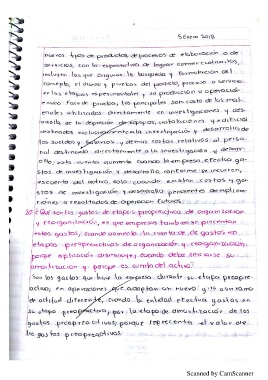 5 Enero 2018
nuevos tipos de productos, de procesos de elaboración o de
servicios, con la expectativa de lograr comercializarlos,
incluyen los que originan la búsqueda y formulación del
concepto, el diseño y pruebas del producto, proceso o servicio
en las etapas experimentales y su producción u operación
Fase de pruebas, los principales son costo de los mate-
riales utilizados directamente en investigación y desa-
rrollo de la de equipos, instalaciones y edificios
destinados exclusivamente a la investigación y desarrollo de
los sueldos y salarios, y demás costos relativos al perso-
nal destinado directamente a la investigación y desarro-
llo, esta cuenta aumenta cuando la empresa efectúa gas-
tos de investigación y desarrollo, conforme se incurren,
es cuenta del activo, solo cuando existan costos y gas-
tos de investigación y desarrollo
a resultados de operación futuros
¿Qué son los gastos de etapas preoperativas de organización
y reorganización, en que empresas también se presentan
estos gastos, cuando aumenta la cuenta de gastos en
etapas preoperativas de organización y reorganización,
porque aplicación disminuye, cuando debe iniciarse su
amortización y porque es cuenta del activo?
Son los gastos que hace la empresa durante su etapa preope-
rativa, en operaciones que adoptan un nuevo giro
de actitud diferente, cuando la entidad efectúa gastos en
su etapa preoperativa, por la etapa de amortización de los
gastos preoperativos, porque representa el valor de
los gastos preoperativos.
Scanned by CamScanner